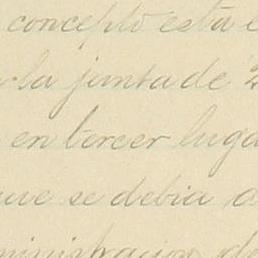 concepto está
la junta de
en tercer luga
que se debia
ministracion de